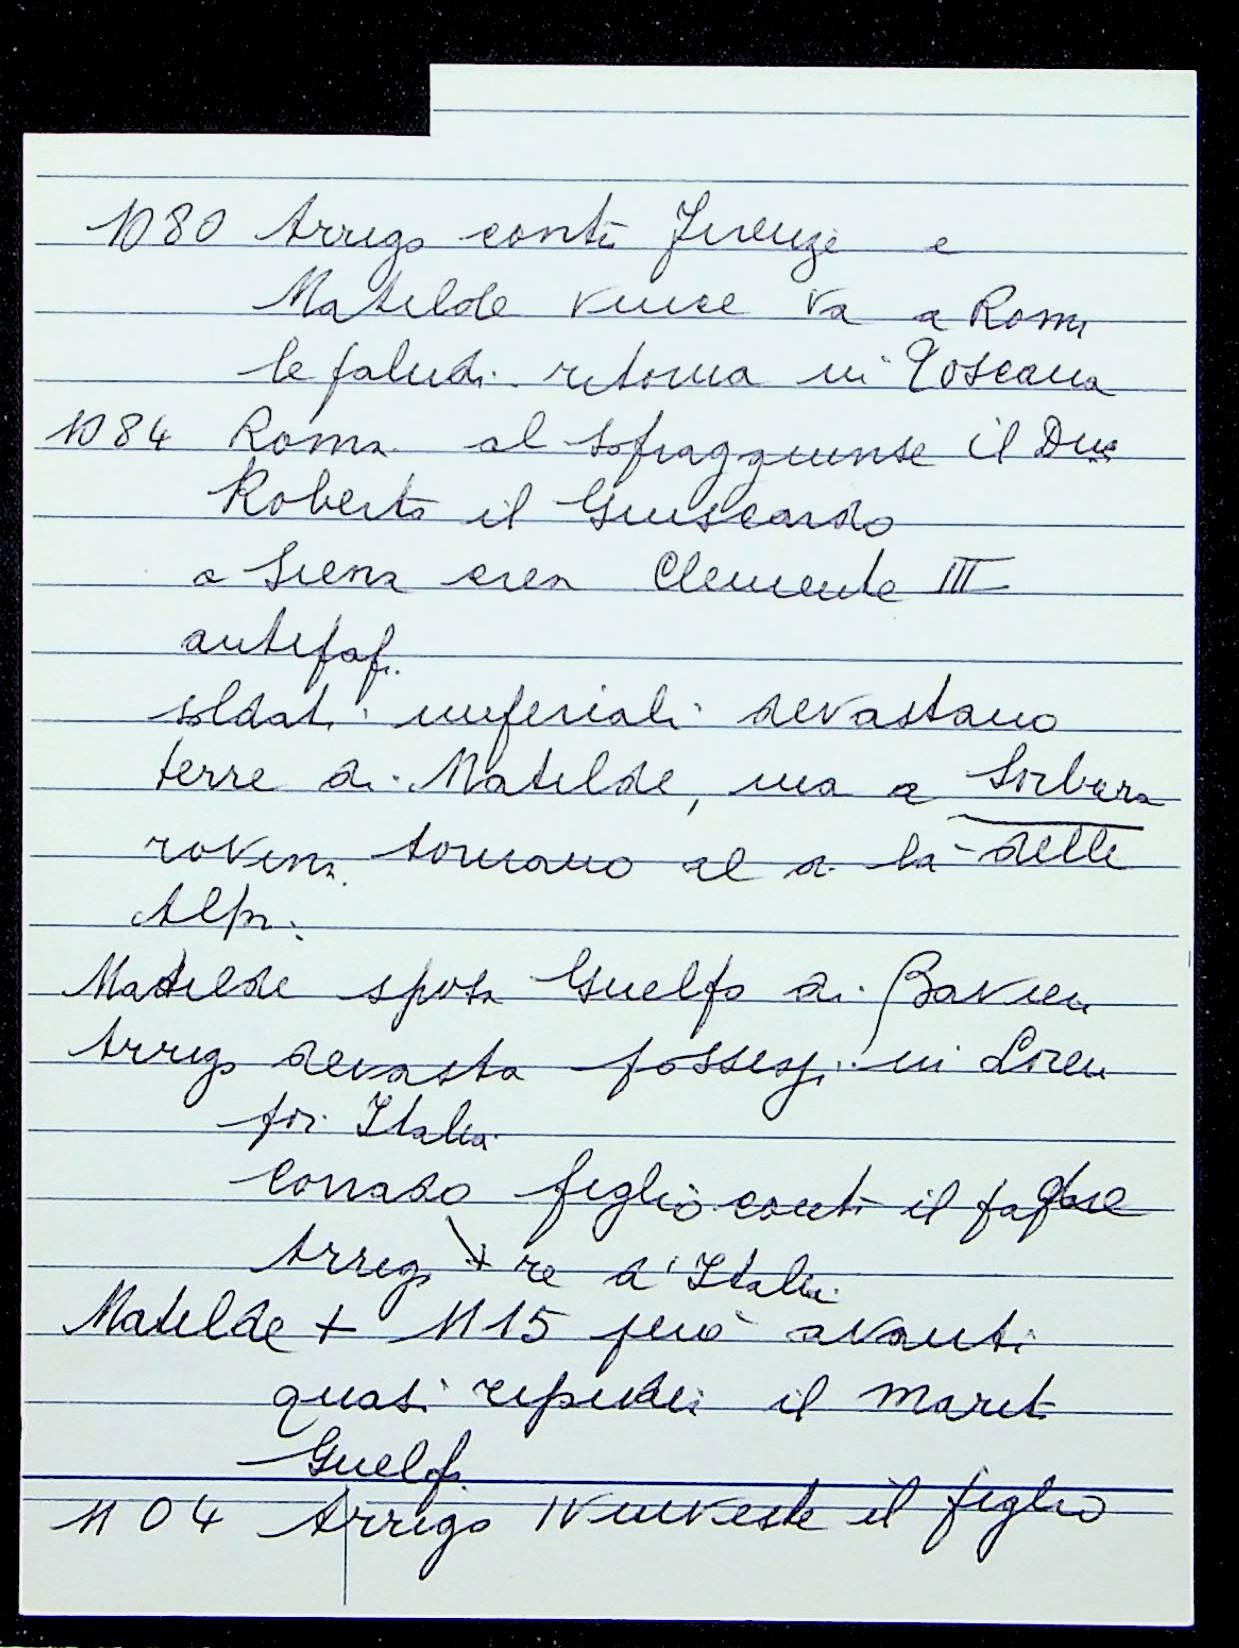 1080 Arrigo contro Firenze e
Matilde vince va a Roma
le paludi ritorna in Toscana
1084 Roma al sopraggiunse il Duc
Roberto il Guiscardo
a Siena crea Clemente III
antipap.
soldati imperiali devastano
terre di Matilde, ma a Sorbara
rovina tornano al di là delle
Alpi.
Matilde sposa Guelfo di Baviera
Arrigo devasta possessi in Loren
poi Italia
Corrado figlio contro il
Arrigo + re d'Italia
Matilde + 1115 però avanti
quasi ripudii il marito
Guelfo
1104 Arrigo IV investe il figlio